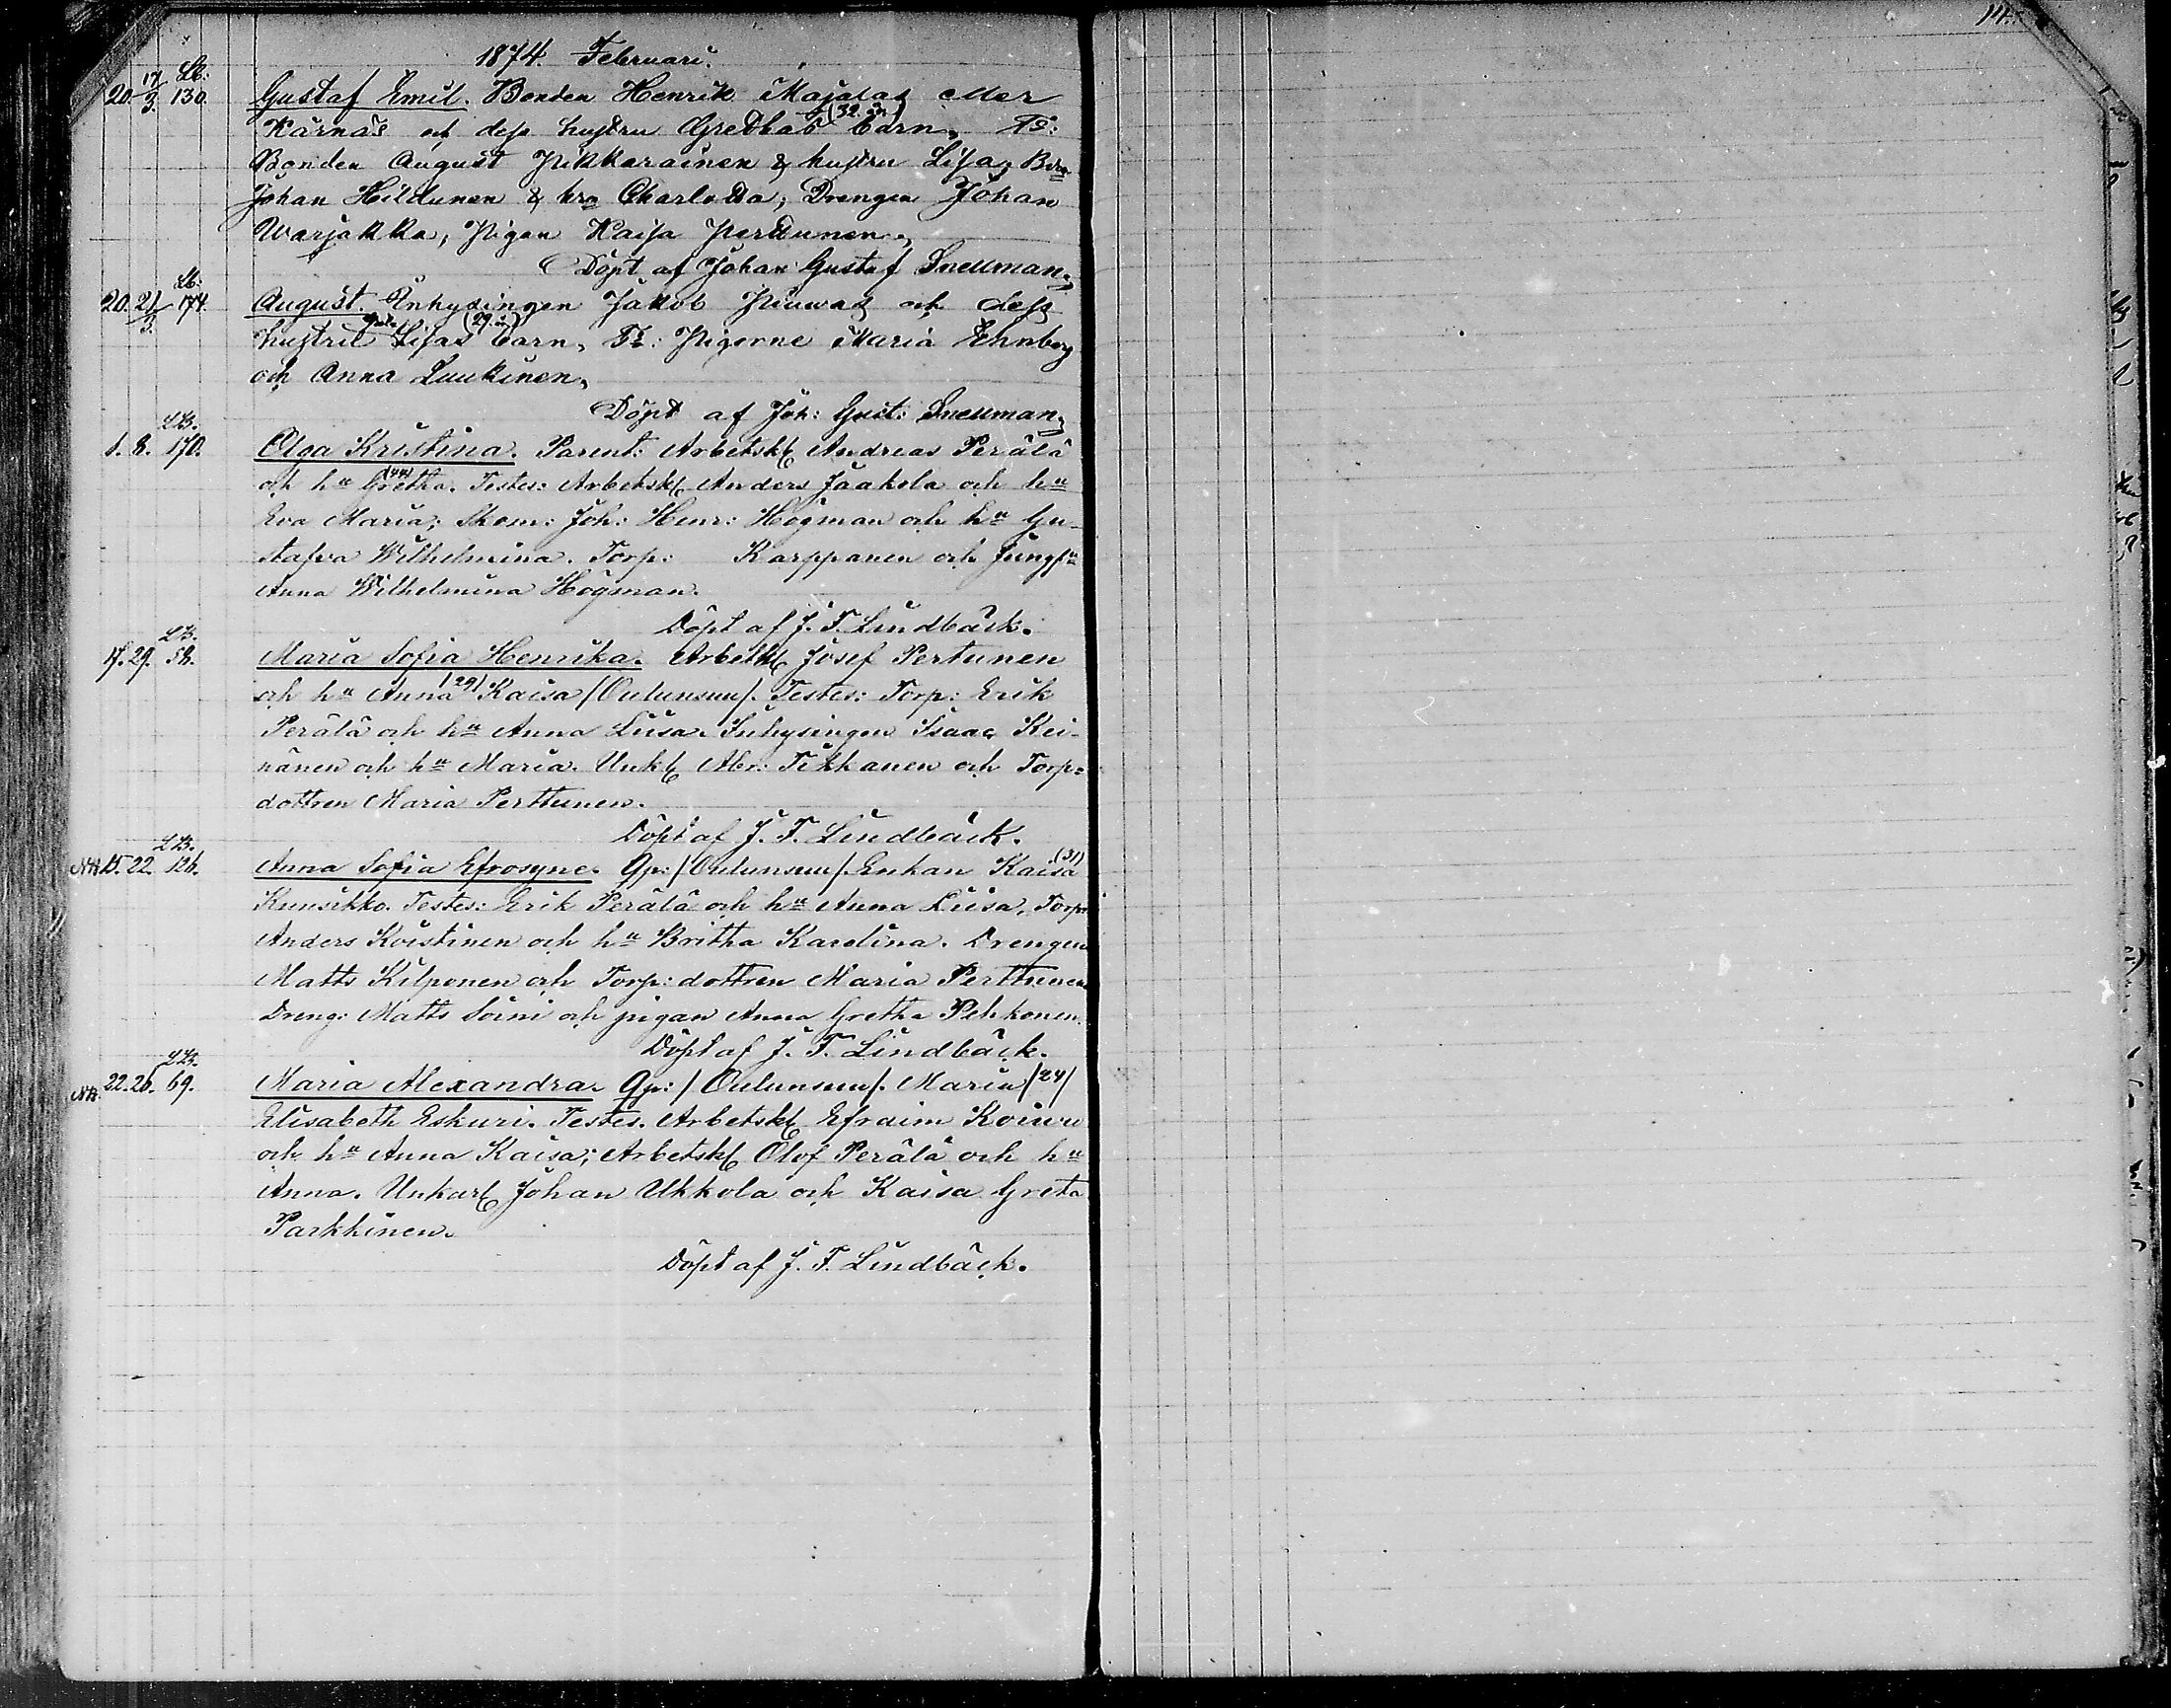 14
1874. Februari.
20. 17/3. Lb: 130. Gustaf Emil. Bonden Henrik Majalas eller
Kärnäs och dess hustru Grethas (32 år) barn, Ts:
Bonden August Pikkarainen & hustru Lisa, Bdn
Johan Hildunen & hru Charlotta, Drengen Johan
Warjakka, Pigan Kaisa Perttunen,
Döpt af Johan Gustaf Snellman,
20. 21/3. Lb. 174. August. Inhysingen Jakob Piuwas och dess
hustru Lisas (29 å) barn, Ts: Pigorne Maria Ehnberg
och Anna Luukinen,
Döpt af Joh: Gust: Snellman,
1. 8. LB. 170. Olga Kristina. Parent: Arbetsk. Andreas Perälä
och hu Gretha (44). Testes: Arbetsk. Anders Jaakola och hu
Eva Maria; Skom: Joh: Henr: Högman och hu Gu-
stafva Wilhelmina. Torp: Karppanen och Jungfu
Anna Wilhelmina Högman.
Döpt af J. F. Lindbäck.
17. 29. LB. 58. Maria Sofia Henrika. Arbetsk. Josef Pertunen
och hu Anna (29) Kaisa /Oulunsuu/. Testes: Torp: Erik
Perälä och hu Anna Liisa. Inhysingen Isaac Kei-
nänen och hu Maria. Unk. Abr. Tikkanen och Torp=
dottren Maria Perttunen.
Döpt af J. F. Lindbäck.
15. 22. LB. 126. Anna Sofia Efrosyne. Qp: /Oulunsuu/. Enkan Kaisa (31)
Kuusikko. Testes: Erik Perälä och hu Anna Liisa, Torp:
Anders Koistinen och hu Britha Karolina. Drengen
Matts Kilponen och Torp: dottren Maria Perttunen
Dreng: Matts Soini och pigan Anna Gretha Pehkonen.
Döpt af J. F. Lindbäck.
22. 26. LB. 69. Maria Alexandra. Qp: /Oulunsuu/. Maria /24/
Elisabeth Eskuri. Testes. Arbetsk. Efraim Koivu
och hu Anna Kaisa; Arbetsk. Olof Perälä och hu
Anna. Unkarl. Johan Ukkola och Kaisa Greta
Parkkinen.
Döpt af J. F. Lindbäck.